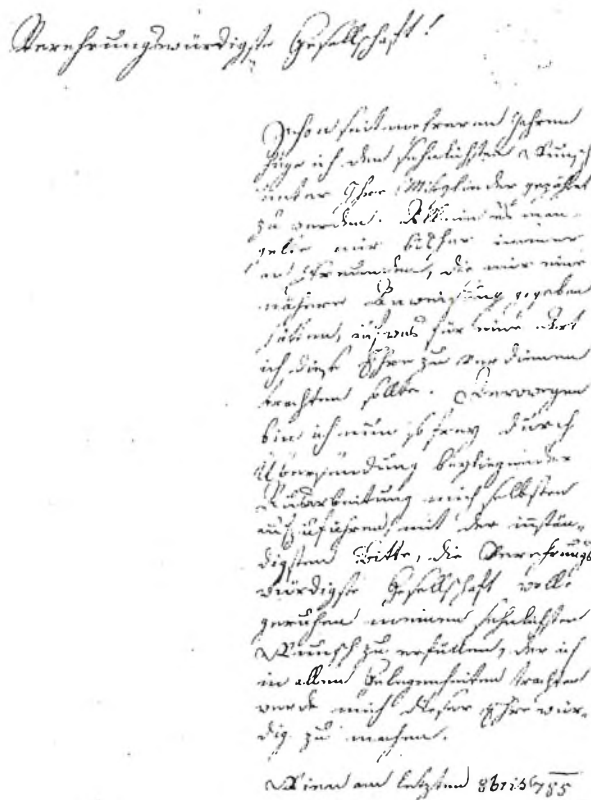 Verehrungswürdigste Gesellschaft!
Schon seit mehreren Jahren
hege ich den sehnlichsten Wunsch
unter Ihre Mitglieder gezählt
zu werden. Allein es man-
gelte mir bisher immer
an Freunden, die mir eine
nähere Anweisung gegeben
hätten, auf was für eine Art
ich diese Ehre zu verdienen
trachten sollte. Deswegen
bin ich nun so frey durch
Übersendung beyliegender
Ausarbeitung mich selbsten
aufzuführen, mit der instän-
digsten Bitte, die Verehrungs
würdigste Gesellschaft wolle
geruhen meinen sehnlichsten
Wunsch zu erfüllen, der ich
in allen Gelegenheiten trachten
werde mich dieser Ehre wür-
dig zu machen.
Wien am letzten 8bris 785